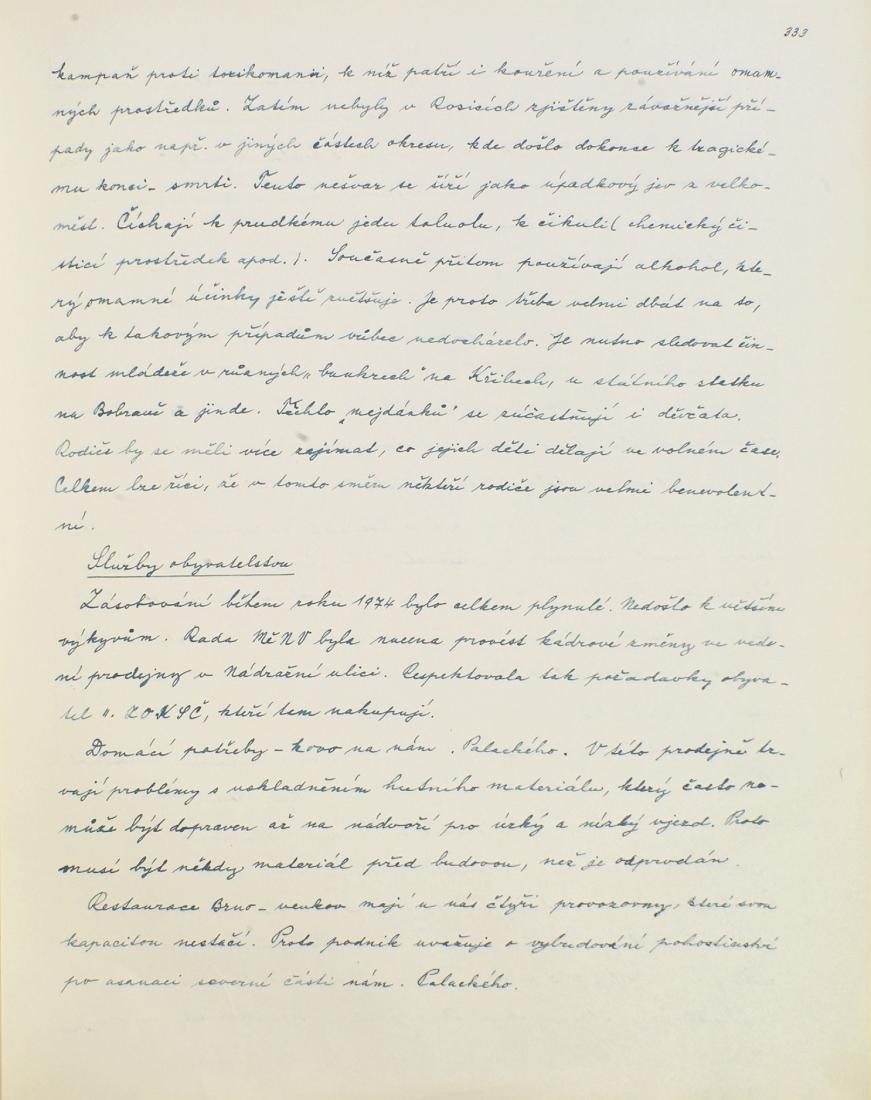 333
kampaň proti toxikomanii, k níž patří i kouření a používání omam-
ných prostředků. Zatím nebyly v Rosicích zjištěny závažnější pří-
pady jako např. v jiných částech okresu, kde došlo dokonce k tragické-
mu konci - smrti. Tento nešvar se šíří jako úpadkový jev z velko-
měst. Číchají k prudkému jedu toluolu, k čikuli ( chemický či-
stící prostředek apod.). Současně přitom používají alkohol, kte-
rý omamné účinky ještě zvětšuje. Je proto třeba velmi dbát na to,
aby k takovým případům vůbec nedocházelo. Je nutno sledovat čin-
nost mládeže v různých „ bunkrech" na Křibech, u státního statku
na Bobravě a jinde. Těchto „mejdánků" se zúčastňují i děvčata.
Rodiče by se měli více zajímat, co jejich děti dělají ve volném čase.
Celkem lze říci, že v tomto směru někteří rodiče jsou velmi benevolent-
ní.
Služby obyvatelstvu
Zásobování během roku 1974 bylo celkem plynulé. Nedošlo k větším
výkyvům. Rada MěNV byla nucena provést kádrové změny ve vede-
ní prodejny v Nádražní ulici. Respektovala tak požadavky obyva-
tel a ZO KSČ, kteří tam nakupují.
Domácí potřeby - kovo na nám. Palackého. V této prodejně tr-
vají problémy s uskladněním hutního materiálu, který často ne-
může být dopraven až na nádvoří pro úzký a nízký vjezd. Proto
musí být někdy materiál před budovou, než je odprodán.
Restaurace Brno - venkov mají u nás čtyři provozovny, které svou
kapacitou nestačí. Proto podnik uvažuje o vybudování pohostinství
po asanaci severní části nám. Palackého.